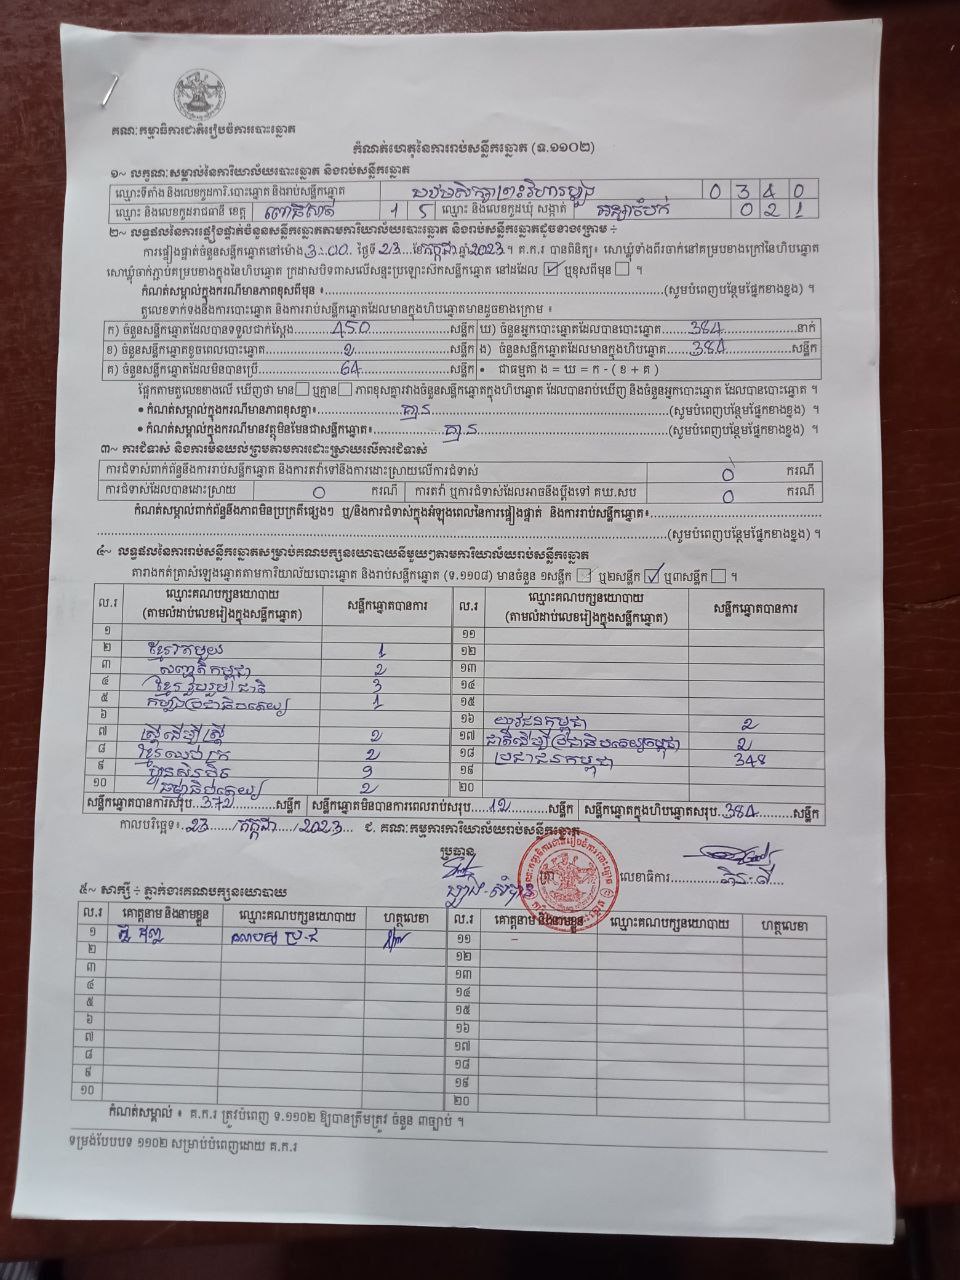 គណៈកម្មាធិការជាតិរៀបចំការបោះឆ្នោត
កំណត់ហេតុនៃការរាប់សន្លឹកឆ្នោត (ទ.១១០២)
១~ លក្ខណៈសម្គាល់នៃការិយាល័យបោះឆ្នោត និងរាប់សន្លឹកឆ្នោត
ឈ្មោះទីតាំង និងលេខកូដការិ.បោះឆ្នោត និងរាប់សន្លឹកឆ្នោត 0 3 4 0
ឈ្មោះ និងលេខកូដរាជធានី ខេត្ត ពោធិ៍សាត់ 1 5 ឈ្មោះ និងលេខកូដឃុំ សង្កាត់ អន្សាចំបក់ 0 2 1
២~ លទ្ធផលនៃការផ្ទៀងផ្ទាត់ចំនួនសន្លឹកឆ្នោតតាមការិយាល័យបោះឆ្នោត និងរាប់សន្លឹកឆ្នោតដូចខាងក្រោម ÷
ការផ្ទៀងផ្ទាត់ចំនួនសន្លឹកឆ្នោតនៅម៉ោង 3:00 ថ្ងៃទី 23 ខែ កក្កដា ឆ្នាំ 2023 ។ គ.ក.រ បានពិនិត្យ៖ សោឃ្លុំទាំងពីរចាក់នៅគម្របខាងក្រៅនៃហិបឆ្នោត
សោឃ្លុំចាក់ភ្ជាប់គម្របខាងក្នុងនៃហិបឆ្នោត ក្រដាសបិទពាសលើសន្ទះប្រឡោះសិកសន្លឹកឆ្នោត នៅដដែល ☑ ឬខុសពីមុន ☐ ។
កំណត់សម្គាល់ក្នុងករណីមានភាពខុសពីមុន ៖ (សូមបំពេញបន្ថែមផ្នែកខាងខ្នង) ។
តួលេខទាក់ទងនឹងការបោះឆ្នោត និងការរាប់សន្លឹកឆ្នោតដែលមានក្នុងហិបឆ្នោតមានដូចខាងក្រោម ៖
ក) ចំនួនសន្លឹកឆ្នោតដែលបានទទួលជាក់ស្តែង 450 សន្លឹក ឃ) ចំនួនអ្នកបោះឆ្នោតដែលបានបោះឆ្នោត 384 នាក់
ខ) ចំនួនសន្លឹកឆ្នោតខូចពេលបោះឆ្នោត 2 សន្លឹក ង) ចំនួនសន្លឹកឆ្នោតដែលមានក្នុងហិបឆ្នោត 384 សន្លឹក
គ) ចំនួនសន្លឹកឆ្នោតដែលមិនបានប្រើ 64 សន្លឹក • ជាធម្មតា ង = ឃ = ក - ( ខ + គ )
ផ្អែកតាមតួលេខខាងលើ ឃើញថា មាន ☐ ឬគ្មាន ☐ ភាពខុសគ្នារវាងចំនួនសន្លឹកឆ្នោតក្នុងហិបឆ្នោត ដែលបានរាប់ឃើញ និងចំនួនអ្នកបោះឆ្នោត ដែលបានបោះឆ្នោត ។
• កំណត់សម្គាល់ក្នុងករណីមានភាពខុសគ្នា៖ គ្មាន (សូមបំពេញបន្ថែមផ្នែកខាងខ្នង) ។
• កំណត់សម្គាល់ក្នុងករណីមានវត្ថុមិនមែនជាសន្លឹកឆ្នោត៖ គ្មាន (សូមបំពេញបន្ថែមផ្នែកខាងខ្នង) ។
៣~ ការជំទាស់ និងការមិនយល់ព្រមតាមការដោះស្រាយលើការជំទាស់
ការជំទាស់ពាក់ព័ន្ធនឹងការរាប់សន្លឹកឆ្នោត និងការតវ៉ាទៅនឹងការដោះស្រាយលើការជំទាស់ 0 ករណី
ការជំទាស់ដែលបានដោះស្រាយ 0 ករណី ការតវ៉ា ឬការជំទាស់ដែលអាចនឹងប្តឹងទៅ គឃ.សប 0 ករណី
កំណត់សម្គាល់ពាក់ព័ន្ធនឹងភាពមិនប្រក្រតីផ្សេងៗ ឬ/និងការជំទាស់ក្នុងអំឡុងពេលនៃការផ្ទៀងផ្ទាត់ និងការរាប់សន្លឹកឆ្នោត៖
(សូមបំពេញបន្ថែមផ្នែកខាងខ្នង) ។
៤~ លទ្ធផលនៃការរាប់សន្លឹកឆ្នោតសម្រាប់គណបក្សនយោបាយនីមួយៗតាមការិយាល័យរាប់សន្លឹកឆ្នោត
តារាងកត់ត្រាសំឡេងឆ្នោតតាមការិយាល័យបោះឆ្នោត និងរាប់សន្លឹកឆ្នោត (ទ.១១០៨) មានចំនួន ១សន្លឹក ☐ ឬ២សន្លឹក ☑ ឬ៣សន្លឹក ☐ ។
ល.រ ឈ្មោះគណបក្សនយោបាយ (តាមលំដាប់លេខរៀងក្នុងសន្លឹកឆ្នោត) សន្លឹកឆ្នោតបានការ ល.រ ឈ្មោះគណបក្សនយោបាយ (តាមលំដាប់លេខរៀងក្នុងសន្លឹកឆ្នោត) សន្លឹកឆ្នោតបានការ
១ ១១
២ ខ្មែរតែមួយ 1 ១២
៣ សញ្ជាតិកម្ពុជា 2 ១៣
៤ ខ្មែររួបរួមជាតិ 3 ១៤
៥ កម្លាំងប្រជាធិបតេយ្យ 1 ១៥
៦ ១៦ យុវជនកម្ពុជា 2
៧ ស្ត្រីដើម្បីស្ត្រី 2 ១៧ ជាតិដើម្បីប្រជាធិបតេយ្យកម្ពុជា 2
៨ ខ្មែរឈប់ក្រ 2 ១៨ ប្រជាជនកម្ពុជា 348
៩ ហ្វ៊ុនស៊ិនប៉ិច 9 ១៩
១០ ធម្មាធិបតេយ្យ 2 ២០
សន្លឹកឆ្នោតបានការសរុប 372 សន្លឹក សន្លឹកឆ្នោតមិនបានការពេលរាប់សរុប 12 សន្លឹក សន្លឹកឆ្នោតក្នុងហិបឆ្នោតសរុប 384 សន្លឹក
កាលបរិច្ឆេទ៖ 23 / កក្កដា / 2023 ជ. គណៈកម្មការការិយាល័យរាប់សន្លឹកឆ្នោត
ប្រធាន
ត្រា
លេខាធិការ
៥~ សាក្សី ÷ ភ្នាក់ងារគណបក្សនយោបាយ
ល.រ គោត្តនាម និងនាមខ្លួន ឈ្មោះគណបក្សនយោបាយ ហត្ថលេខា ល.រ គោត្តនាម និងនាមខ្លួន ឈ្មោះគណបក្សនយោបាយ ហត្ថលេខា
១ គណបក្ស ប្រ.ជ ១១
២ ១២
៣ ១៣
៤ ១៤
៥ ១៥
៦ ១៦
៧ ១៧
៨ ១៨
៩ ១៩
១០ ២០
កំណត់សម្គាល់ ៖ គ.ក.រ ត្រូវបំពេញ ទ.១១០២ ឱ្យបានត្រឹមត្រូវ ចំនួន ៣ច្បាប់ ។
ទម្រង់បែបបទ ១១០២ សម្រាប់បំពេញដោយ គ.ក.រ